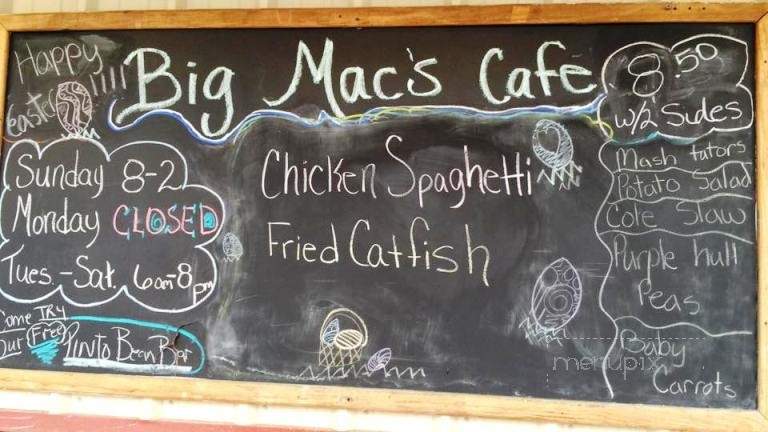 Happy
easter
!!!!
Big Mac's Cafe
8.50
w/2 Sides
Sunday 8-2
Monday CLOSED
Tues.-Sat. 6am-8pm
Come TRY
Our Free
Pinto Bean Bar
Chicken Spaghetti
Fried Catfish
Mash tators
Potato Salad
Cole Slaw
Purple hull
Peas
Baby
Carrots
menupix